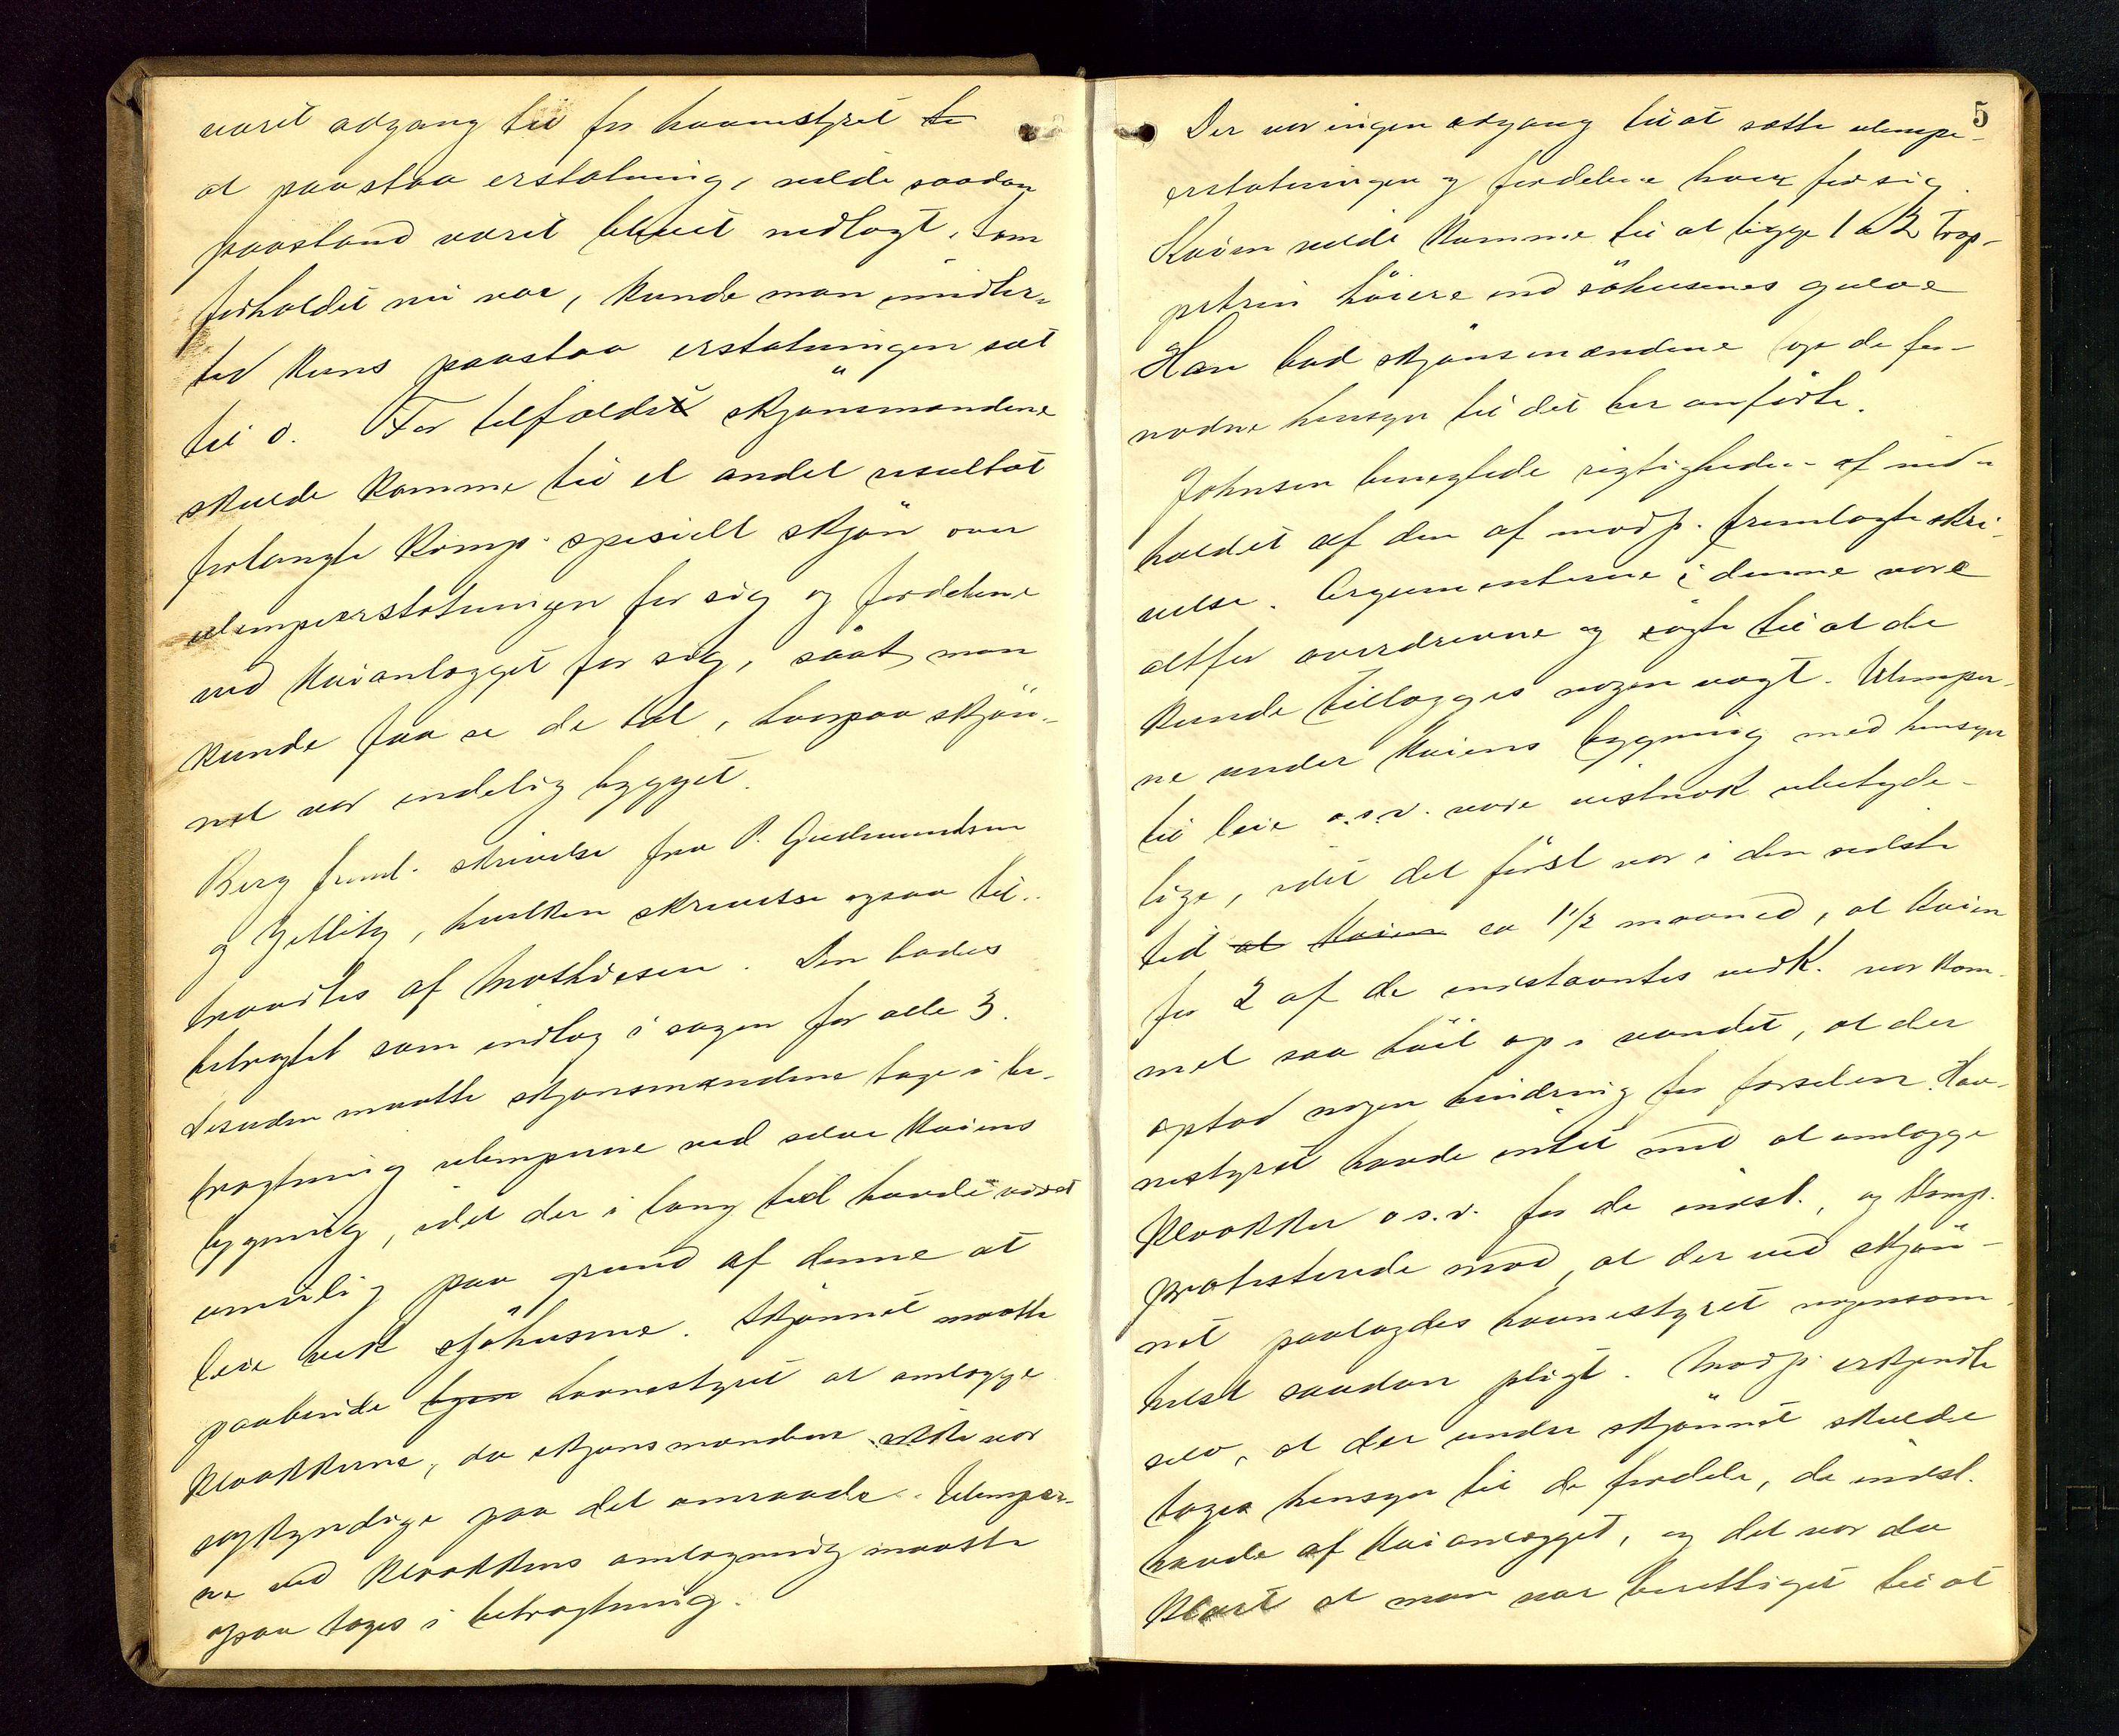 været adgang til for havnestyret te
at paastaa erstatning, vilde saadan
paastand været blevet nedlagt, som
forholdet nu var, kunde man imidler-
tid kuns paastaa erstatningen sat
til 0. For tilfældet skjønsmændene
skulde komme til et andet resultat
forlangte komp. specielt skjøn over
ulempeerstatningen for sig og fordelene
ved kaianlægget for sig, saat man
kunde faa se de tal, hvorpaa skjøn-
net var endelig bygget.
Berg freml. skrivelse fra P. Gudmundsen
og Zetlitz, hvilken skrivelse ogsaa til-
traadtes af Mathiesen. Den bades
betragtet som indlæg i sagen for alle 3.
Desuden maatte skjønsmændene tage i be-
tragtning ulemperne ved selve kaiens
bygning, idet der i lang tid havde været
umulig paa grund af denne at
leie vek sjøhusene. Skjønnet maatte
paabinde byen havnestyret at omlægge
kloakkerne, da skjønsmændene ikke var
sagkyndige paa det omraade. Ulemper-
ne ved kloakkens omlægning maatte
ogsaa tages i betragtning.
5
Der var ingen adgang til at sætte ulempe-
erstatningen og fordelene hver for sig.
Kaien vilde komme til at ligge 1 a 2 trap-
petrin høiere end søhusenes gulve
Han bad skjønsmændene tage de for-
nødne hensyn til det her anførte.
Johnsen benegtede rigtigheden af ind-
holdet af den af modp. fremlagte skri-
velse. Argumenterne i denne vare
altfor overdrevne og søgte til at de
kunde tillægges nogen vægt. Ulemper-
ne under kaiens bygning med hensyn
til leie o.s.v. vare vistnok ubetyde-
lige, idet det først var i den sidste
tid at kaien ca 1 1/2 maaned, at kaien
for 2 af de indstævntes vedk. var kom-
met saa høit op i vandet, at der
opstod nogen hindring for færselen. Hav-
nestyret havde intet med at omlægge
kloakker o.s.v. for de indst., og komp.
protesterede mod, at der ved skjøn-
net paalagdes havnestyret nogensom-
helst saadan pligt. Modp. erkjendte
selv, at der under skjønnet skulde
tages hensyn til de fordele, de indst.
havde af kaianlægget, og det var da
klart at man var berettiget til at